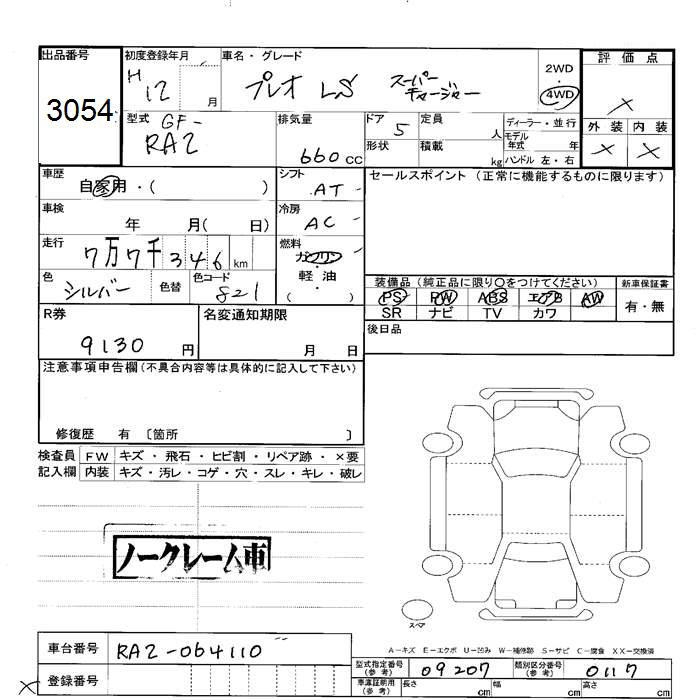 出品番号
3054
初度登録年月
H 12 月
車名・グレード
プレオ LS スーパーチャージャー
2WD
・
4WD
評価点
×
外装 内装
× ×
型式 GF-
RA2
排気量
660 CC
ドア 5
形状
定員 人
積載 kg
ディーラー・並行
モデル年式 年
ハンドル 左・右
車歴
自家用・( )
シフト
AT
セールスポイント (正常に機能するものに限ります)
車検
年 月( 日)
冷房
AC
走行
7万7千346 km
燃料
ガソリン
・
軽油
・
( )
色
シルバー
色替
色コード
821
装備品 (純正品に限り○をつけてください)
新車保証書
PS PW ABS エアB AW
有・無
SR ナビ TV カワ
R券
9130 円
名変通知期限
月 日
後日品
注意事項申告欄 (不具合内容等は具体的に記入して下さい)
修復歴 有 〔箇所 〕
検査員 FW キズ・飛石・ヒビ割・リペア跡・×要
記入欄 内装 キズ・汚レ・コゲ・穴・スレ・キレ・破レ
ノークレーム車
スペア
A-キズ E-エクボ U-凹み W-補修跡 S-サビ C-腐食 XX-交換済
車台番号 RA2-064110
型式指定番号 (参考) 09207
類別区分番号 (参考) 0117
× 登録番号
車庫証明用 (参考)
長さ cm 幅 cm 高さ cm